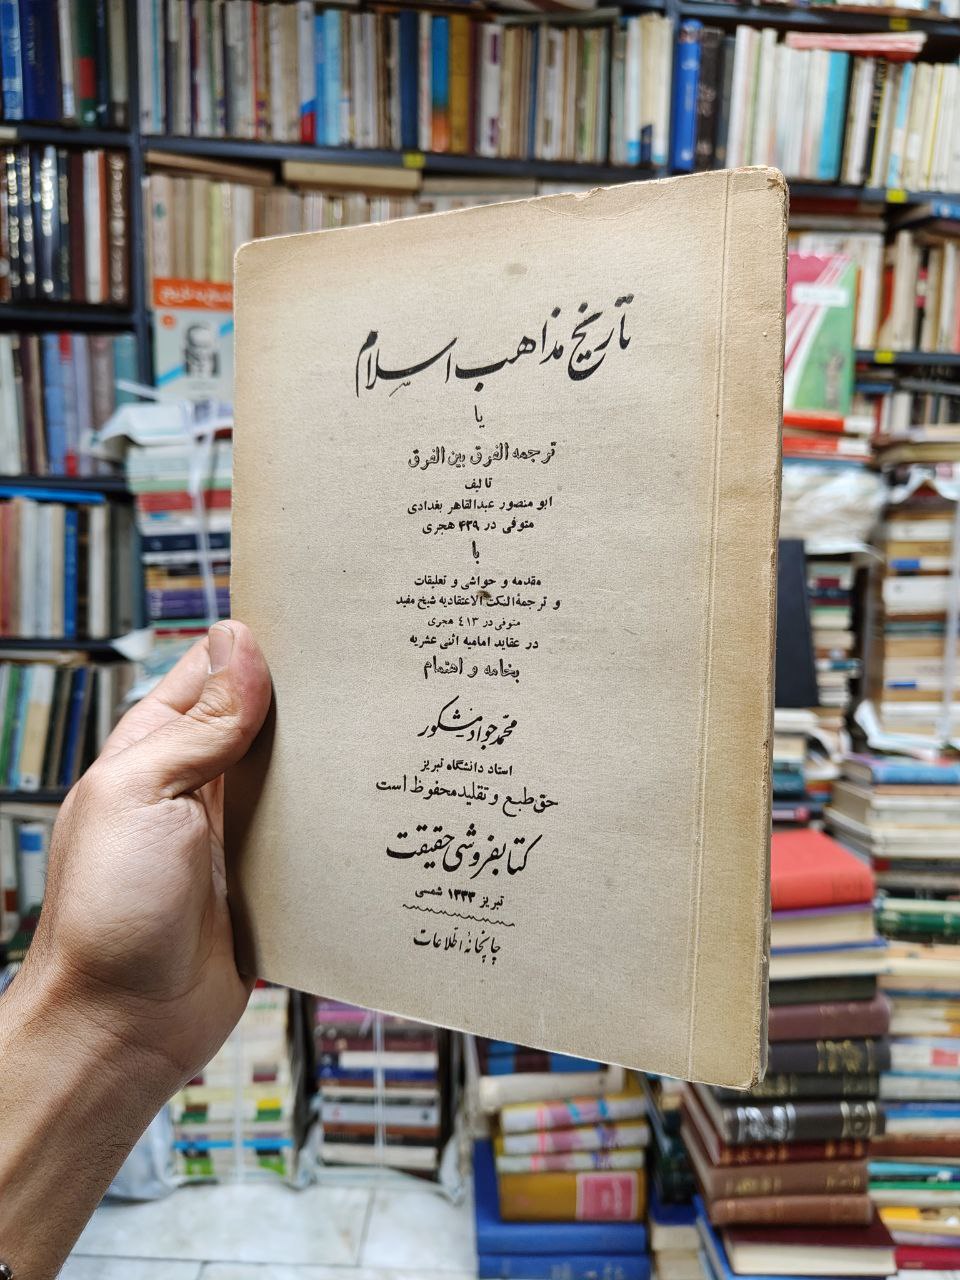 تاریخ مذاهب اسلام
یا
ترجمه الفرق بین الفرق
تالیف
ابو منصور عبدالقاهر بغدادی
متوفی در ۴۲۹ هجری
با
مقدمه و حواشی و تعلیقات
و ترجمهٔ النکت الاعتقادیه شیخ مفید
متوفی در ٤١٣ هجری
در عقاید امامیه اثنی عشریه
بخامه و اهتمام
محمد جواد مشکور
استاد دانشگاه تبریز
حق طبع و تقلید محفوظ است
کتابفروشی حقیقت
تبریز ۱۳۳۳ شمسی
چاپخانهٔ اطلاعات